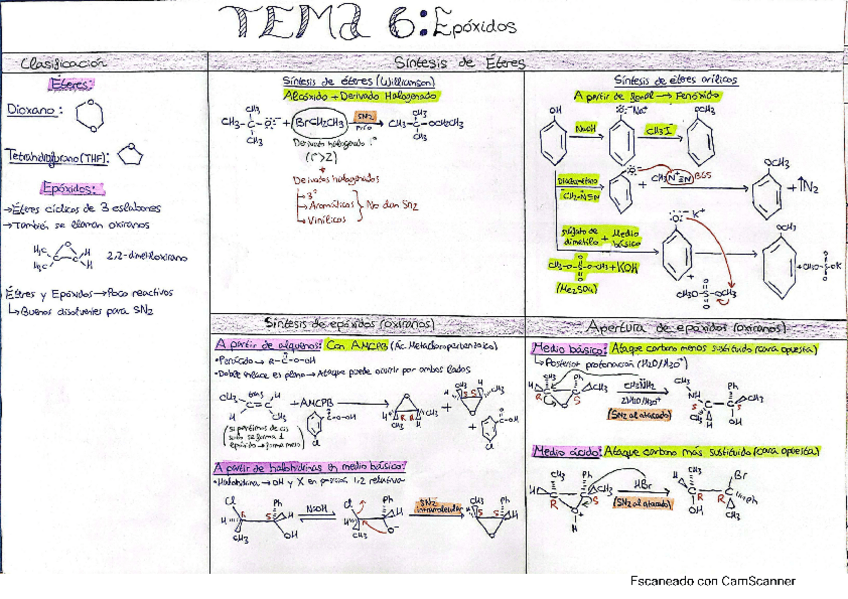 TEMA 6: Epóxidos
Clasificación
Éteres:
Dioxano:
Tetrahidrofurano (THF):
Epóxidos:
→Éteres cíclicos de 3 eslabones
→También se llaman oxiranos
2,2-dimetiloxirano
Éteres y Epóxidos→Poco reactivos
↳Buenos disolventes para SN2
Síntesis de Éteres
Síntesis de éteres (Williamson)
Alcóxido + Derivado Halogenado
BrCH2CH3
SN2
Derivado halogenado
Derivados halogenados
→3º
→Aromáticos
→Vinílicos
No dan SN2
Síntesis de éteres arílicos
A partir de fenol → Fenóxido
OH
NaOH
CH3I
OCH3
Diazometano
OCH3
+ ↑N2
sulfato de dimetilo + Medio básico
+KOH
(Me2SO4)
K+
OCH3
Síntesis de epóxidos (oxiranos)
A partir de alquenos: Con AMCPB (Ác. Metacloroperbenzoico)
•Perácido → R-C-O-OH
•Doble enlace es plano→Ataque puede ocurrir por ambos lados
trans
+AMCPB
(si partimos de cis solo se forma 1 epóxido→forma meso)
A partir de halohidrinas en medio básico:
•Halohidrina → OH y X en posición 1,2 relativa
NaOH
SN2 intramolecular
Apertura de epóxidos (oxiranos)
Medio básico: Ataque carbono menos sustituido (cara opuesta)
↳Posterior protonación (H2O/H3O+)
CH3NH2
2) H2O/H3O+
(SN2 al atacado)
Medio ácido: Ataque carbono más sustituido (cara opuesta)
HBr
(SN2 al atacado)
Escaneado con CamScanner